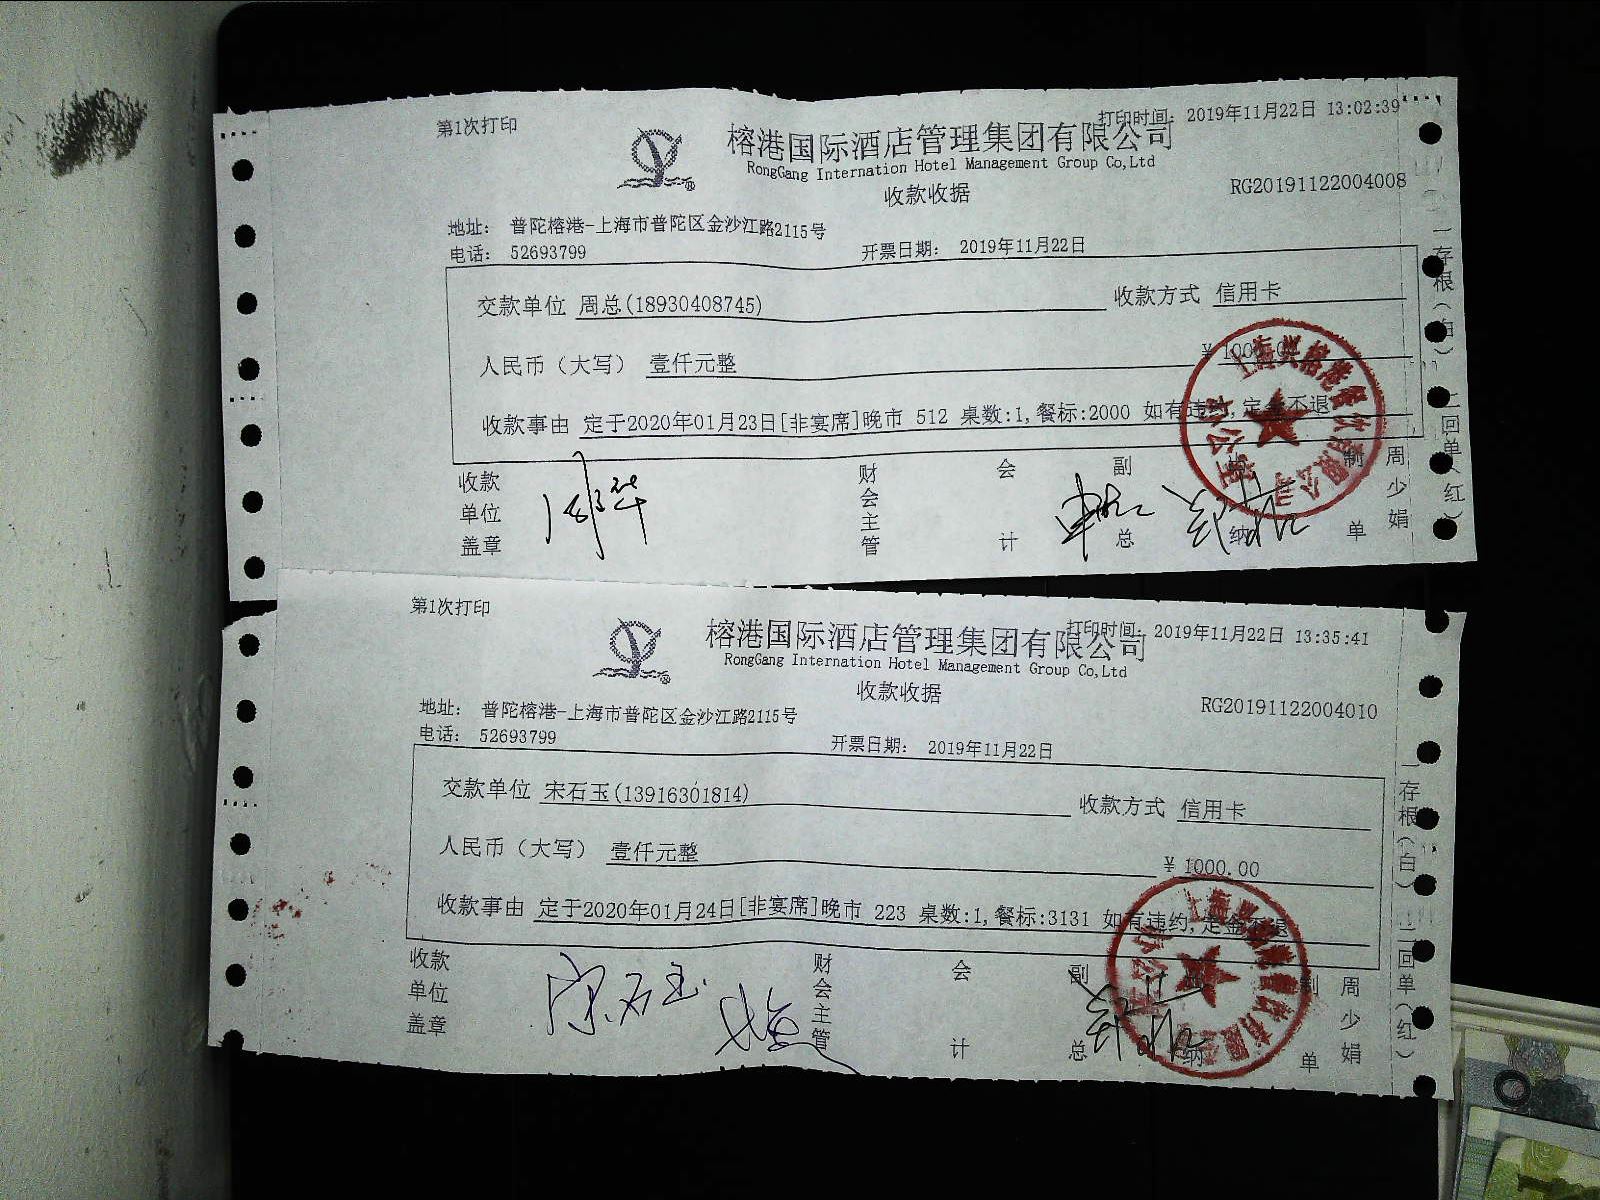 第1次打印
打印时间: 2019年11月22日 13:02:39
榕港国际酒店管理集团有限公司
RongGang Internation Hotel Management Group Co,Ltd
收款收据
RG20191122004008
地址: 普陀榕港-上海市普陀区金沙江路2115号
电话: 52693799
开票日期: 2019年11月22日
交款单位 周总(18930408745)
收款方式 信用卡
人民币(大写) 壹仟元整
收款事由 定于2020年01月23日[非宴席]晚市 512 桌数:1,餐标:2000 如有违约,定金不退
收款单位盖章
财会主管
会计
副总
纳
制单
周少娟
一存根(白)
二回单(红)
第1次打印
打印时间: 2019年11月22日 13:35:41
榕港国际酒店管理集团有限公司
RongGang Internation Hotel Management Group Co,Ltd
收款收据
RG20191122004010
地址: 普陀榕港-上海市普陀区金沙江路2115号
电话: 52693799
开票日期: 2019年11月22日
交款单位 宋石玉(13916301814)
收款方式 信用卡
人民币(大写) 壹仟元整
¥ 1000.00
收款事由 定于2020年01月24日[非宴席]晚市 223 桌数:1,餐标:3131 如有违约,定金不退
收款单位盖章
宋石玉
财会主管
会计
副总
纳
制单
周少娟
一存根(白)
二回单(红)